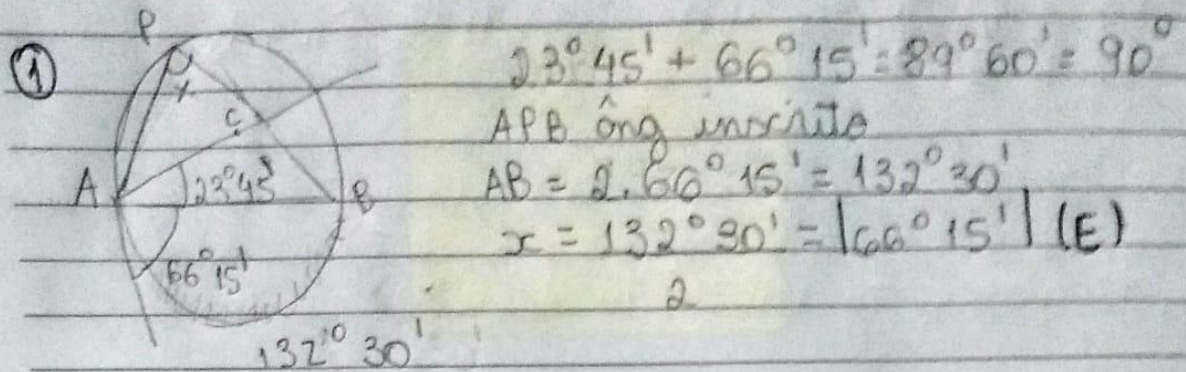 ①
P
x
C
A
23°45'
B
66°15'
132°30'
23°45' + 66°15' = 89°60' = 90°
APB âng inscrito
AB = 2.66°15' = 132°30'
x = 132°30' = |66°15'| (E)
2